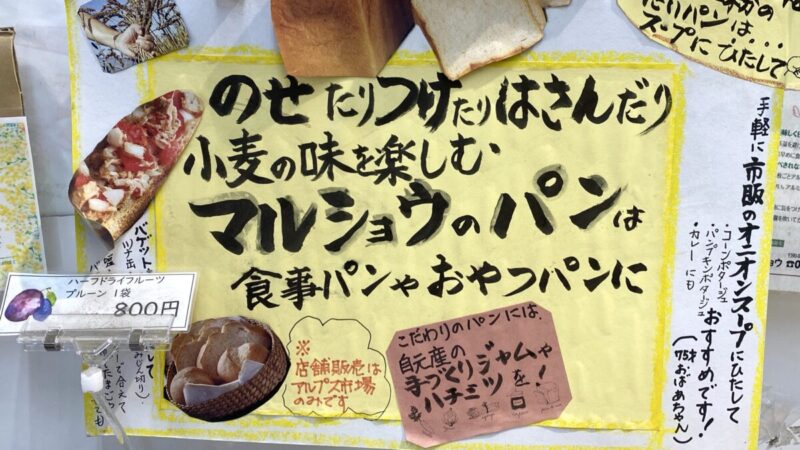 のせたりつけたりはさんだり
小麦の味を楽しむ、
マルショウのパンは
食事パンやおやつパンに
※
店舗販売は
アルプス市場
のみです
こだわりのパンには、
自元産の
手づくりジャムや
ハチミツを!
手軽に市販のオニオンスープにひたして
おすすめです!
(75才おばあちゃん)
・コーンポタージュ
・パンプキンポタージュ
・カレーにも
たりパンは...
スープにひたして
バゲット
ツナ缶
ハーフドライフルーツ
プルーン 1袋
800円